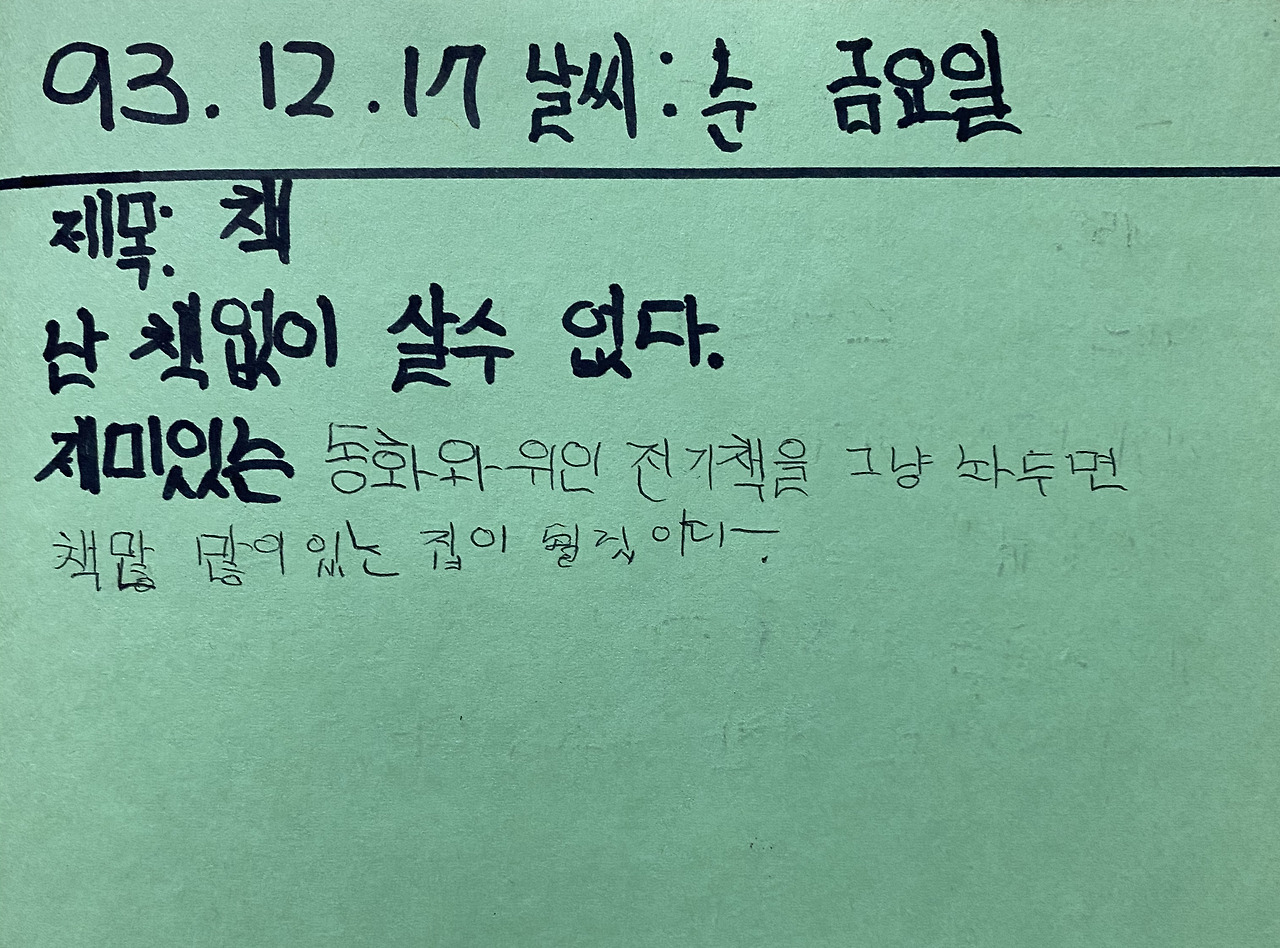 93.12.17 날씨: 눈 금요일
제목: 책
난 책없이 살수 없다.
재미있는 동화와 위인 전기책을 그냥 놔두면
책많 많이 있는 집이 될것 이다.